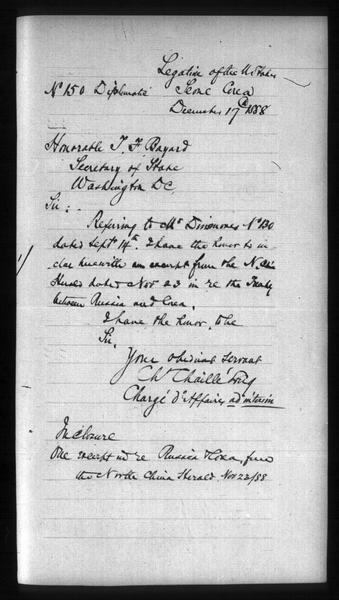 Legation of the U. States
No 150 Diplomatic Seoul Corea
December 17th 1888
Honorable T. F. Bayard
Secretary of State
Washington D.C.
Sir:
Refering to Mr Dinsmores No 130
dated Sept 14th. I have the honor to in
close herewith an excerpt from the N. Ch
Herald dated Nov 23 in re the Treaty
between Russia and Corea.
I have the honor, to be
Sir,
Your obedient servant
Ch Chaillé Long
Chargé d'Affaires ad interim
Inclosure
One excerpt in re Russia & Corea, from
the North China Herald Nov 23/88